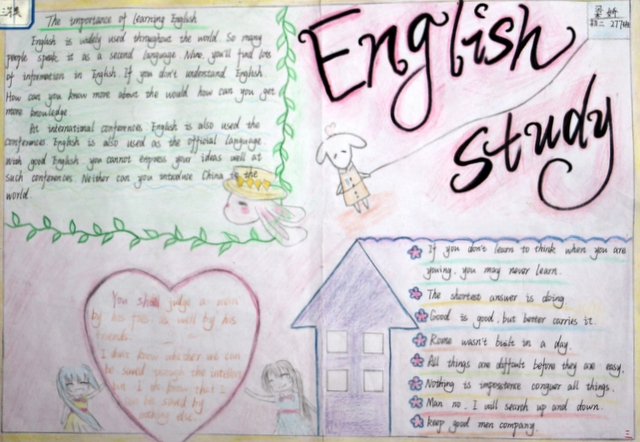 The importance of learning English
English is widely used throughout the world. So many
people speak it as a second language. Now. you'll find lots
of information in English. If you don't understand English.
How can you know more about the would how can you get
more knowledge
At international conferences English is also used the
conferences English is also used as the official language
with good English you cannot express your ideas well at
such conferences Neither can you introduce China to the
world.
English
Study
You shall judge a man
by his foes as well by his
friends.
I don't know whether we can
be saved through the intellect
but I do know that I
can be saved by
nothing else
If you don't learn to think when you are
young, you may never learn.
The shortest answer is doing
Good is good, but better carries it.
Rome wasn't built in a day.
All things are difficult before they are easy,
Nothing is impossible conquer all things.
Man no. I will search up and down.
keep good men company.